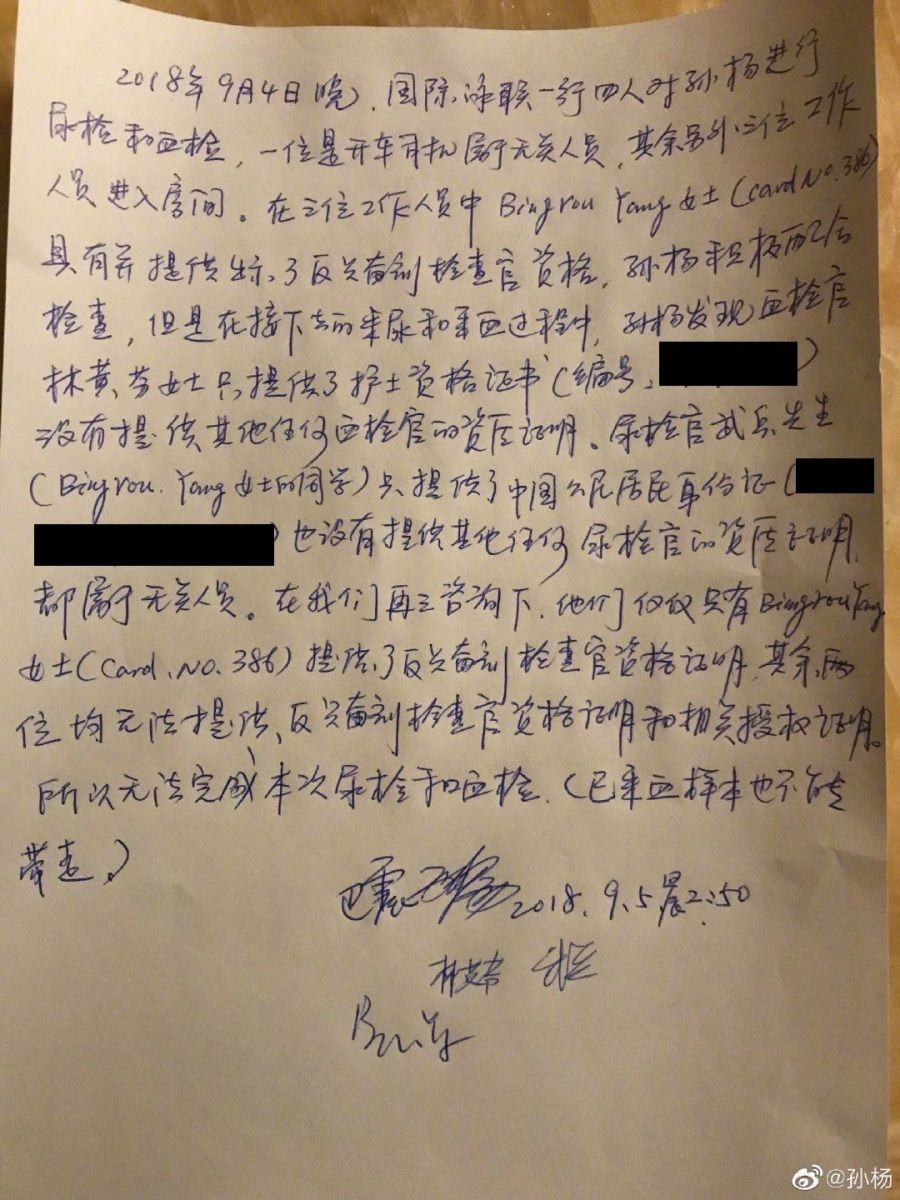 2018年9月4日晚，国际泳联一行四人对孙杨进行
尿检和血检，一位是开车司机属于无关人员，其余另外三位工作
人员进入房间。在三位工作人员中Bingrou Yang女士(card No.386)
具有并提供出示了反兴奋剂检查官资格，孙杨积极配合
检查，但是在接下去的采尿和采血过程中，孙杨发现血检官
林黄芬女士只提供了护士资格证书(编号：)
没有提供其他任何血检官的资质证明。尿检官武兵先生
(Bingrou. Yang女士的同学)只提供了中国公民居民身份证(
)也没有提供其他任何尿检官的资质证明，
都属于无关人员。在我们再三咨询下，他们仅仅只有Bingrou Yang
女士(Card.No.386)提供了反兴奋剂检查官资格证明，其余两
位均无法提供反兴奋剂检查官资格证明和相关授权证明。
所以无法完成本次尿检和血检.(已采血样本也不能
带走。)
巴震 2018.9.5晨2:50
@孙杨